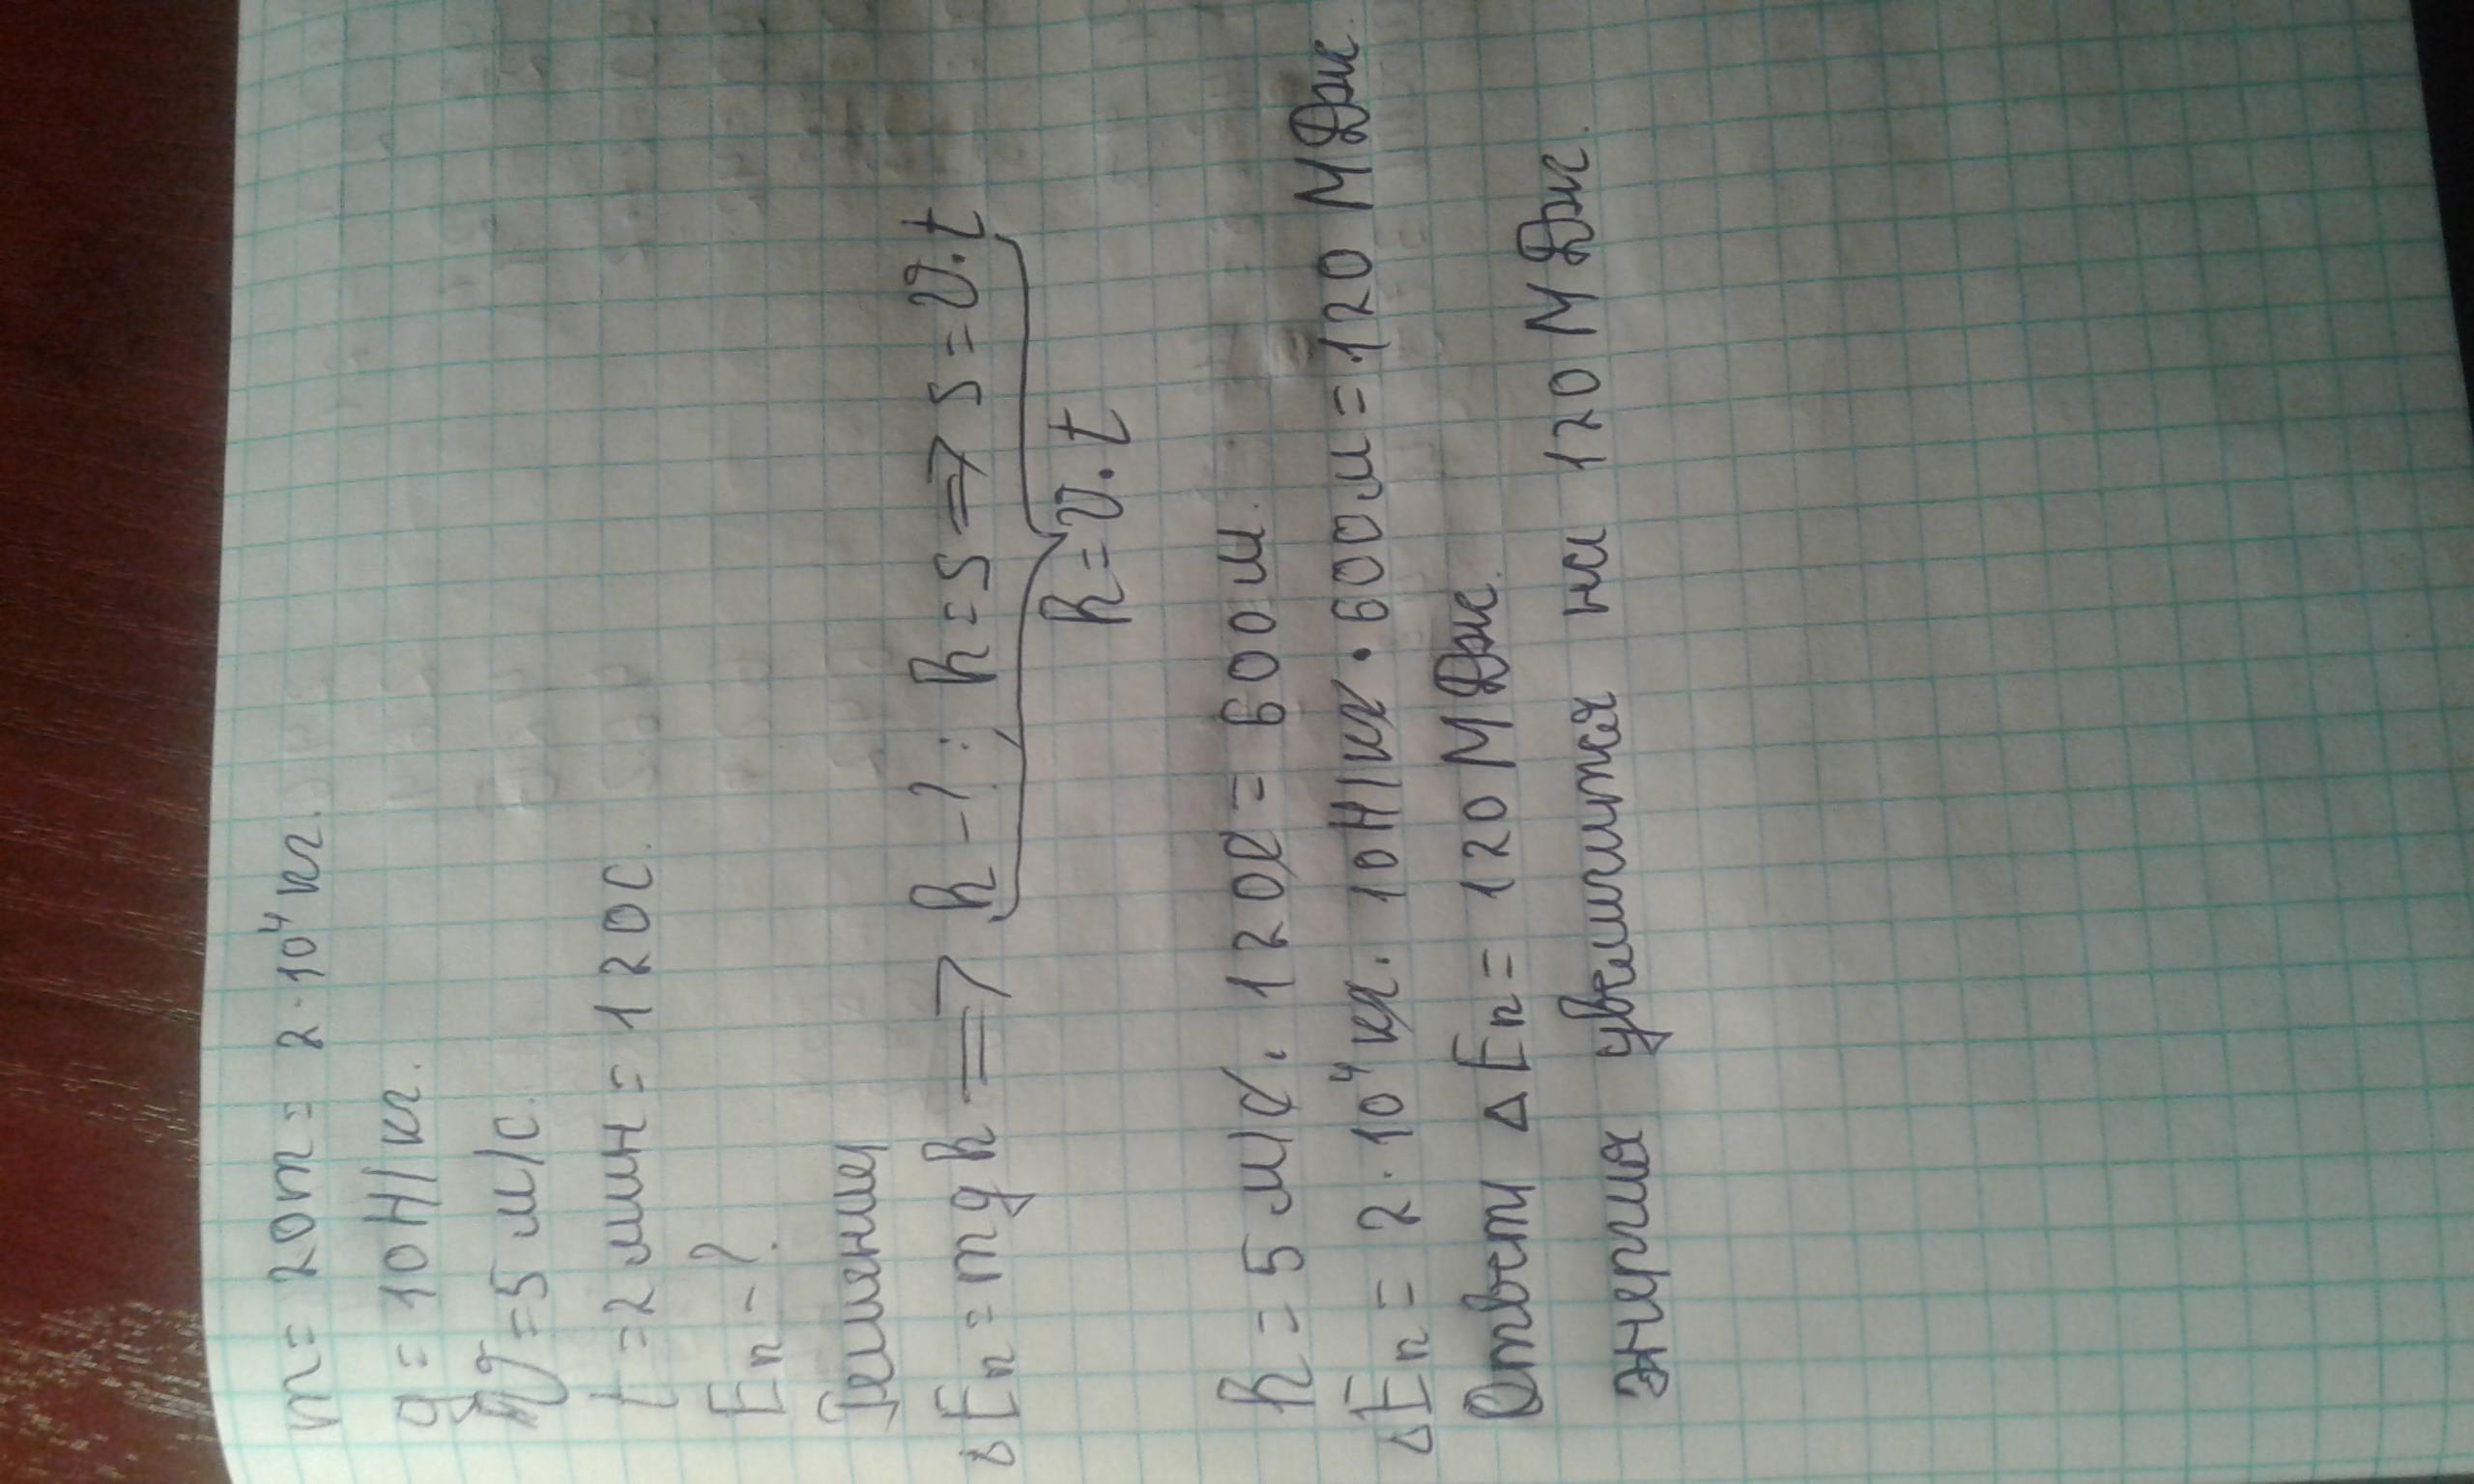 m = 20т = 2 · 10⁴ кг.
g = 10 Н/кг.
v = 5 м/с.
t = 2 мин = 120 с.
Eп - ?
Решение
ΔEп = mgh => h - ? : h = s => s = v · t
h = v · t
h = 5 м/с · 120с = 600 м.
ΔEп = 2 · 10⁴ кг · 10Н/кг · 600м = 120 МДж.
Ответ ΔEп = 120 МДж.
энергия увеличится на 120 МДж.